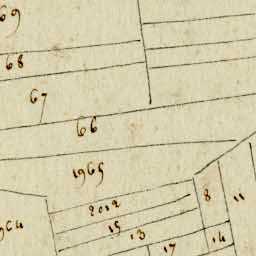 69
68
67
66
1965
2012
8
11
15
13
14
17